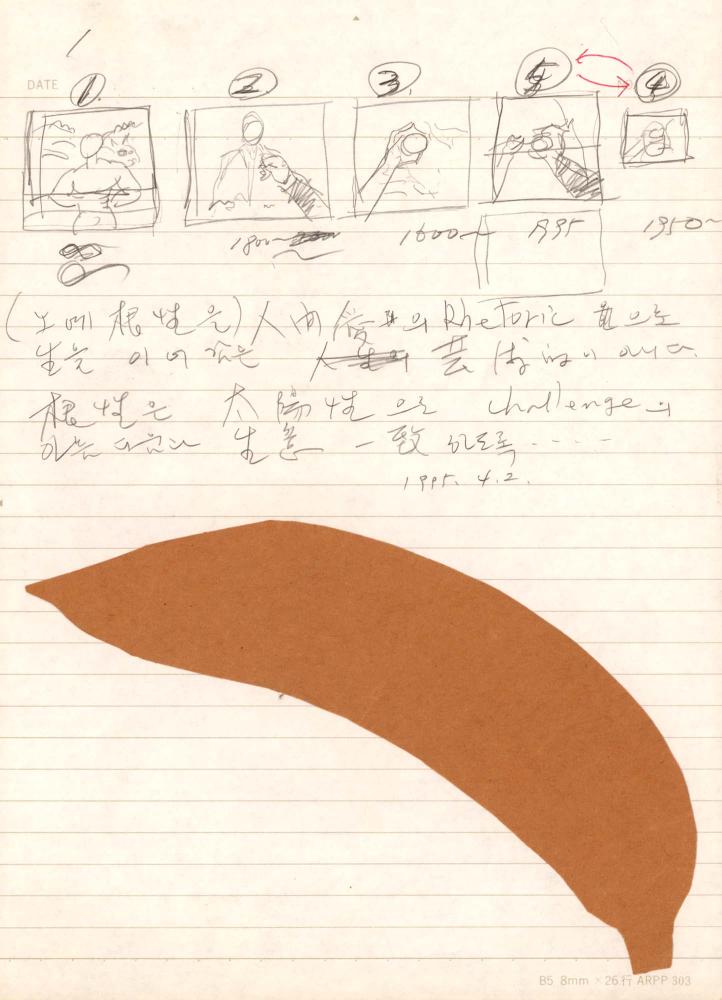 DATE
1. 2 3. 5 4
1800~ 1600~ 1995 1950~
(노예 根性은) 人間愛의 Rhetoric 으로
生을 이어 은 芸術的이 아니다.
根性은 太陽性으로 challenge의
生急 一致 하도록....
1995. 4.2.
B5 8mm × 26行 ARPP 303